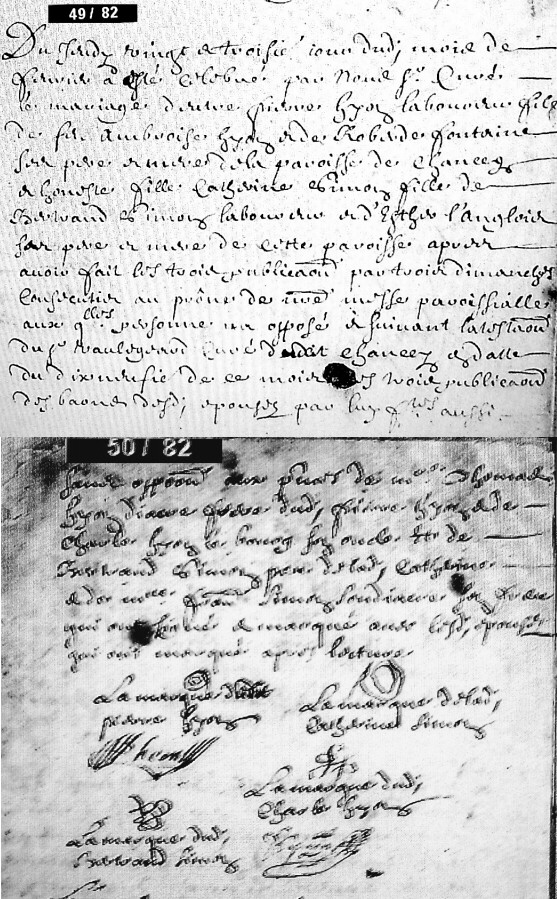 49 / 82
Du Jeudy vingt et troisie jour dud, mois de
fevrier a esté celebré par Nous sr. Curé
le mariage d'entre pierre hyon laboureur fils
de feu Ambroise hyon et de Roberde fontaine
ses pere et mere de la paroisse de Chancey
et honeste fille Catherine Simon fille de
Bertrand Simon laboureur et d'Esther l'Anglois
ses pere et mere de cette paroisse apres
avoir fait les trois publicaons par trois dimanches
consecutifs au prône de nre messe paroissialle
aux qlles personne n'a opposé et suivant l'atestaon
du sr Curé dudit Chancey en datte
du dixneufie de ce mois des trois publicaons
des bans desd, epoux par luy faites aussi
50 / 82
sans opposon aux pnces de me. Thomas
hyon frere dud, pierre hyon de
Charle hyon son oncle de
Bertrand Simon pere de lad, Catherine
et de me. Simon son frere
qui ont signé et marqué avec lesd, epoux
qui ont marqué apres lecture
La marque dudit
pierre hyon
La marque de lad,
Catherine Simon
hyon
La marque dud,
Charle hyon
La marque dud,
Bertrand Simon